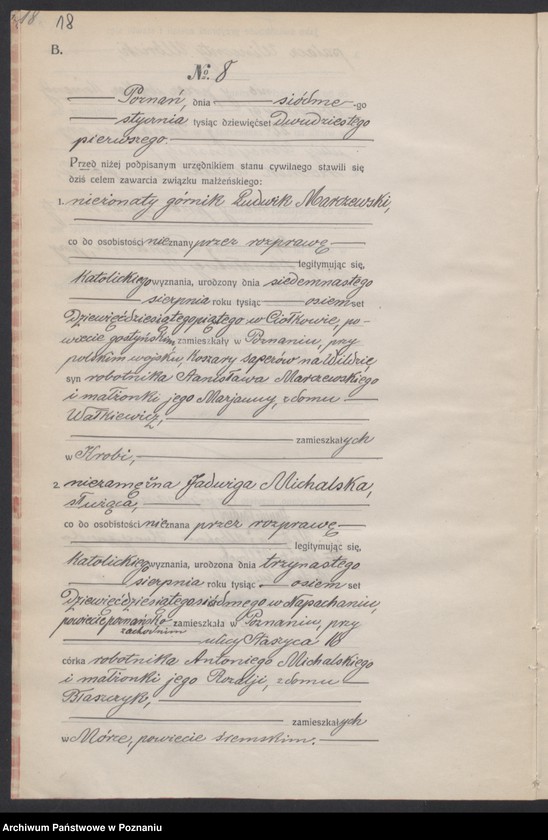 18. 18
B.
No. 8
Poznań, dnia siódme -go
stycznia tysiąc dziewięćset dwudziestego
pierwszego.
Przed niżej podpisanym urzędnikiem stanu cywilnego stawili się
dziś celem zawarcia związku małżeńskiego:
1. nieżonaty górnik Ludwik Marszewski,
co do osobistości nieznany przez rozprawę
legitymując się,
Katolickiego wyznania, urodzony dnia siedemnastego
sierpnia roku tysiąc osiemset
Dziewięćdziesiątego piątego w Ciołkowie, po-
wiecie gostyńskim, zamieszkały w Poznaniu, przy
polskim wojsku, Koszary saperów na Wildzie,
syn robotnika Stanisława Marszewskiego
i małżonki jego Marjanny, z domu
Walkiewicz,
zamieszkałych
w Krobi,
2. niezamężna Jadwiga Michalska,
służąca,
co do osobistości nieznana przez rozprawę
legitymując się,
Katolickiego wyznania, urodzona dnia trzynastego
sierpnia roku tysiąc osiemset
Dziewięćdziesiątego siódmego w Napachaniu,
powiecie poznańsko zamieszkała w Poznaniu, przy
zachodnim ulicy Staszyca 16
córka robotnika Antoniego Michalskiego
i małżonki jego Rozalji, z domu
Błaszczyk,
zamieszkałych
w Mórce, powiecie śremskim.
Archiwum Państwowe w Poznaniu